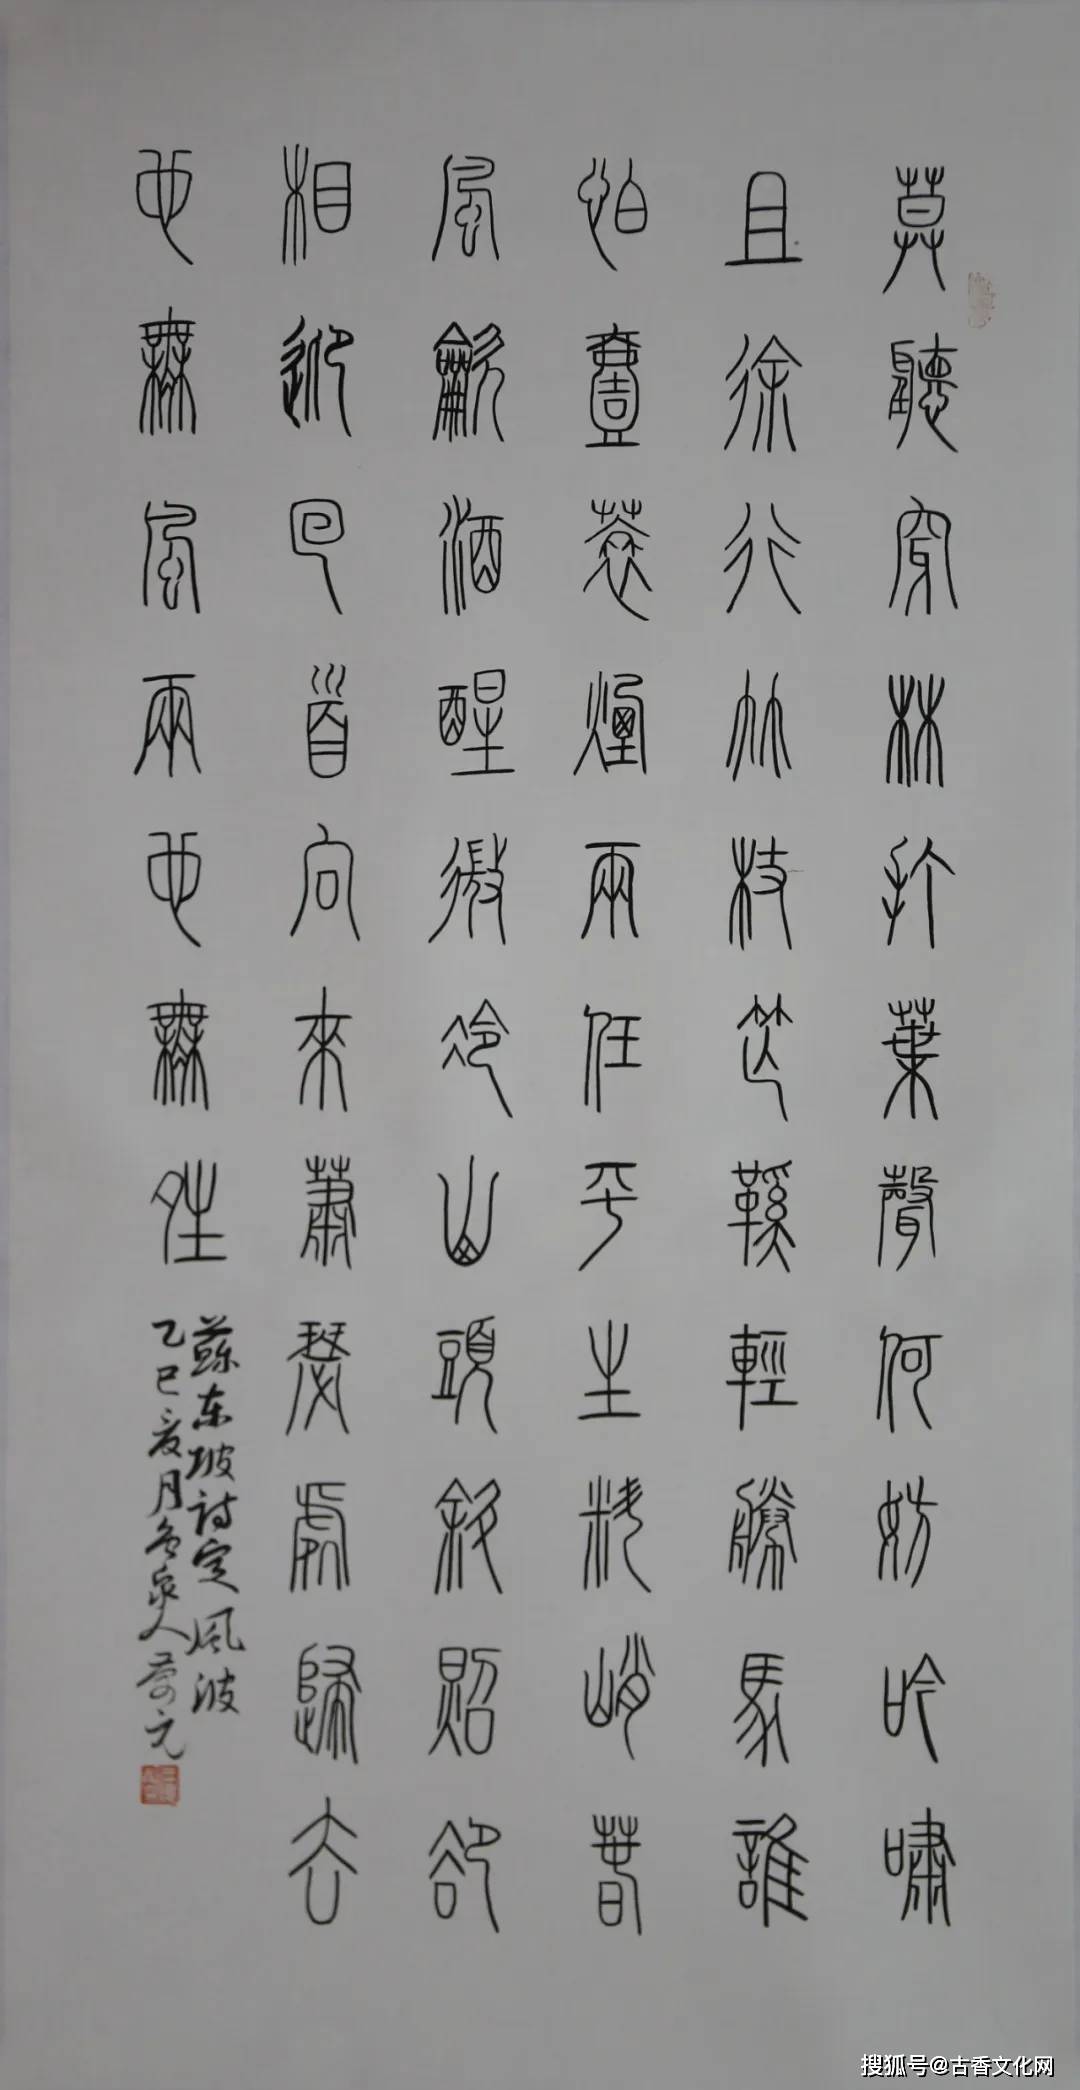 莫聽穿林打葉聲何妨吟嘯
且徐行竹枝芒鞵輕勝馬誰
怕壹蓑煙雨任平生料峭春
風龡酒醒微冷山頭斜照卻
相迎回首向來蕭瑟處歸去
也無風雨也無夝
蘇东坡詩定風波
乙巳亥月泉人元
搜狐号@古香文化网